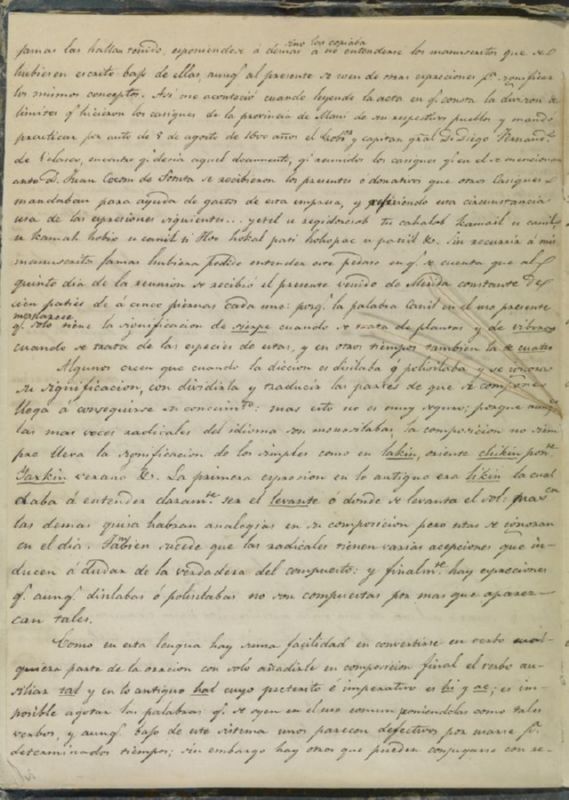 sino los copiaba
famas las hallan tenido, esponiendose á demas á no entenderse los manuscritos que se
hubiesen escrito bajo de ellas, aunq.e al presente se usen de esas expreciones p.a significar
los mismos conceptos. Asi me aconteció cuando leyendo la acta en q.e consta la division de
limites q.e hicieron los casiques de la provincia de Mani de sus respectivos pueblos y mandó
practicar por auto de 8 de agosto de 1600 años el Gob.or y capitan gral D. Diego Fernand.z
de Velasco, encontre q.e decia aquel documento, q.e reunidos los casiques q.e en el se mencionan
ante D. Juan Cocom de Sotuta se recibieron los presentes ó donativos que otros Casiques
mandaban para ayuda de gastos de esta empresa, y refiriendo esta circunstancia
usa de las expreciones siguientes... yetel u regidoresob tu cahalob
u kamah hobio u canil ti Hoo hokal pati hohopac u &c. Sin recurrir á mis
manuscritos jamas hubiera podido entender este pedaso en q.e se cuenta que al
quinto dia de la reunion se recibió el presente venido de Merida constante de
cien paties de á cinco piernas cada uno: porq.e la palabra Canil en el uso presente
q.e solo tiene la significacion de sierpe cuando se trata de plantas y de vivoras
cuando se trata de las especies de estas, y en otros tiempos tambien la de cuatro
Algunos creen que cuando la diccion es disilaba ó polisilaba y se ignora
su significacion, con dividirla y traducir las partes de que se compone
llega á conseguirse su concimt.o: mas esto no es muy seguro; porque aunq.e
las mas veces radicales del idioma son monosilabas, la composicion no siem-
pre lleva la significacion de los simples como en lakin, oriente chikin pon.te
Yaxkin verano &c. La primera expresion en lo antiguo era likin la cual
daba á entender claram.te ser el levante ó donde se levanta el sol: mas en
las demas quisa habran analogías en su composicion pero estas se ignoran
en el dia. Tambien sucede que las radicales tienen varias acepciones que in-
ducen á dudar de la verdadera del compuesto: y finalm.te hay expreciones
q.e aunq.e disilabas ó polisilabas no son compuestas por mas que aparez-
can tales.
Como en esta lengua hay suma facilidad en convertirse en verbo cual-
quiera parte de la oracion con solo añadirle en composicion final el verbo au-
siliar tal y en lo antiguo hal cuyo preterito é imperativo es hi y ac; es im-
posible agotar las palabras q.e se oyen en el uso comun, poniendolas como tales
verbos, y aunq.e bajo de este sistema unos parecen defectivos por usarse p.a
determinados tiempos; sin embargo hay otros que pueden conjugarse con re-